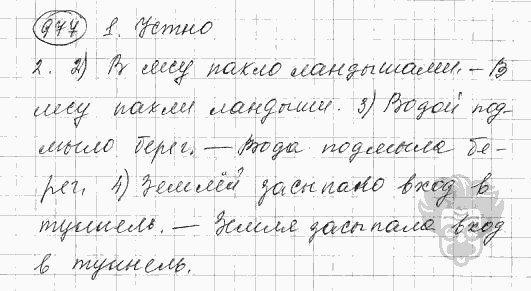 977 1. Устно
2. 2) В лесу пахло ландышами. – В
лесу пахли ландыши. 3) Водой под-
мыло берег. – Вода подмыла бе-
рег. 4) Землёй засыпано вход в
туннель. – Земля засыпала вход
в туннель.